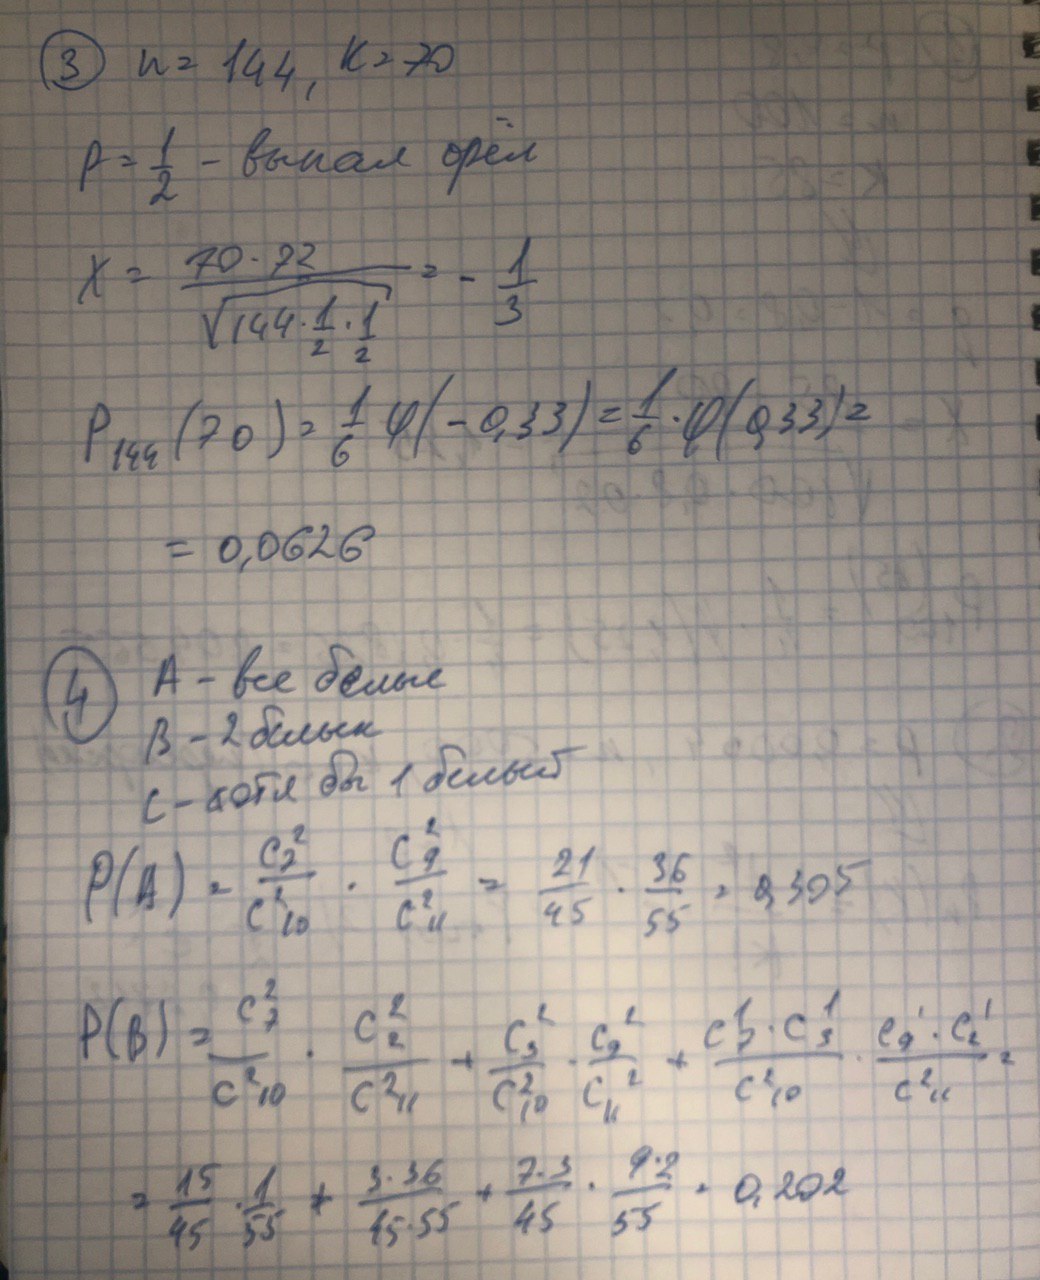 ③ n = 144, K = 70
P = 1/2 - выпал орёл
X = (70 - 72)/√(144 · 1/2 · 1/2) = - 1/3
P₁₄₄(70) = 1/6 φ(-0,33) = 1/6 · φ(0,33) =
= 0,0626
④ A - все белые
B - 2 белых
C - хотя бы 1 белый
P(A) = C²₇/C²₁₀ · C²₉/C²₁₁ = 21/45 · 36/55 = 0,305
P(B) = C²₇/C²₁₀ · C²₂/C²₁₁ + C²₃/C²₁₀ · C²₉/C²₁₁ + (C¹₇ · C¹₃)/C²₁₀ · (C¹₉ · C¹₂)/C²₁₁ =
= 15/45 · 1/55 + (3 · 36)/(45 · 55) + (7 · 3)/45 · (9 · 2)/55 = 0,202